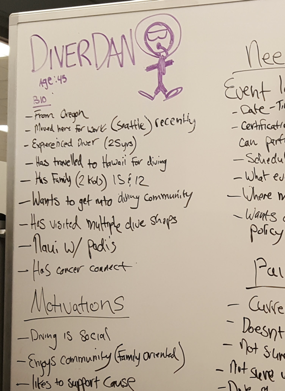 DIVERDAN
age: 43
BIO:
- From Oregon
- Moved here for work (Seattle) recently
- Experienced Diver (25yrs)
- Has travelled to Hawaii for diving
- Has Family (2 kids) 15 & 12
- Wants to get into diving community
- Has visited multiple dive shops
- Maui w/ padi's
- Has cancer connect
Motivations
- Diving is social
- Enjoys community (family oriented)
- likes to support cause
Nee
Event
- Date - Ti
- Certificatio
can par
- Schedul
- What eve
- Where m
- Wants
policy
Pai
- Curre
- Doesnt
- Not sur
- Not sure